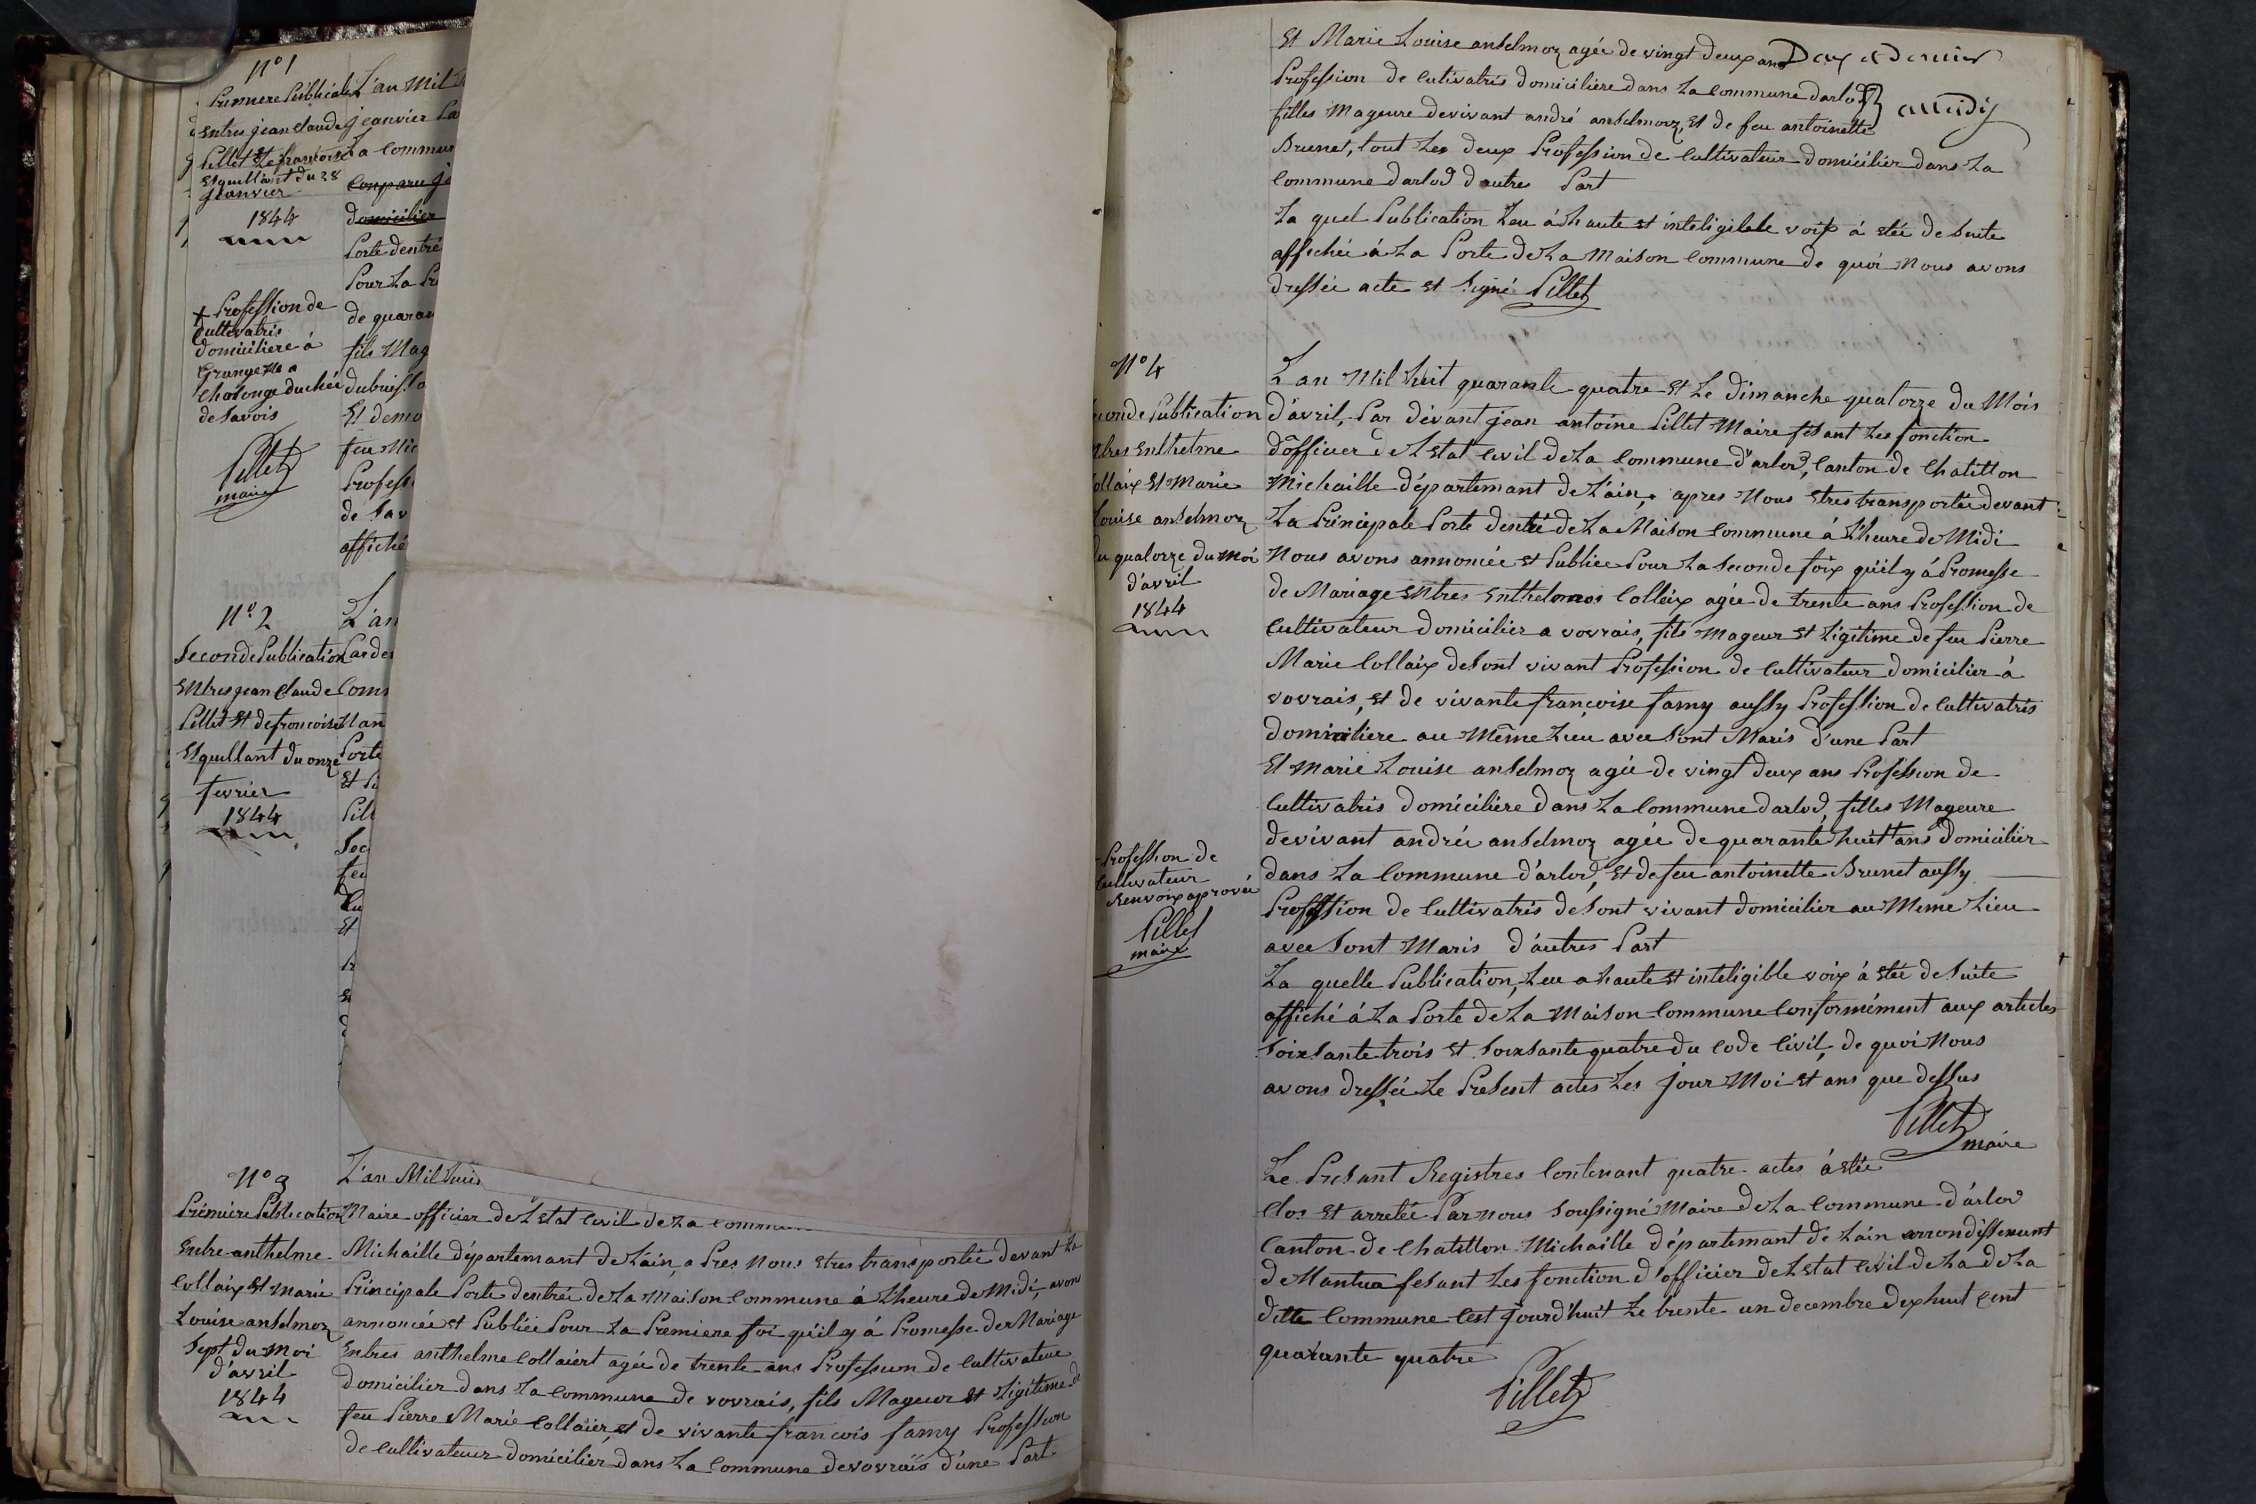 N° 1
Premiere Publicatn
Entres jean Claude
Pillet Et françoise
Esquillant du 28
janvier
1844
L'an Mil
jeanvier
La Commun
Comparu
domicilier
Porte dentré
Pour La Pr
de quaran
fils Mag
Et demo
feu Mic
Professi
de Sav
affiché
+ Profession de
Cultivatris
domiciliere á
duchée
de Savois
Pillet
maire
N° 2
Seconde Publication
Entres jean Claude
Pillet Et de francoise
Esquillant du onze
fevrier
1844
L'an
Par de
Com
Porte
Et
Pill
Sec
feu
Et
N° 3
Première Publication
Entre anthelme
Collaix Et Marie
Louise anselmoz
Sept du Moi
d'avril
1844
L'an Mil huit
Maire officier de L'Etat Civil de La commun
Michaille département de L'ain, a Pres Nous Etres transportée devant La
Principale Porte dentrée de La Maison Commune á L'heure de Midi, avons
annoncée Et Publiée Pour La Premiere foi qu'il y á Promesse de Mariage
Entres anthelme Collaiert agée de trente ans Profession de Cultivateur
domicilier dans La Commune de vovrais, fils Mageur Et Ligitime de
feu Pierre Marie Collaier, et de vivante francois famy Profession
de Cultivateur domicilier dans La Commune de vovrais d'une Part
Et Marie Louise anselmoz agée de vingt deux ans
Profession de Cutivatris domiciliere dans La Commune darlod
filles Mageure de vivant andré anselmoz, Et de feu antoinette
Brunet, tout Les deux Profession de Cultivateur domicilier dans La
Commune darlod d autres Part
La quel Publication Leu á haute et inteligibele voix á étée de Suite
affichée á La Porte de La Maison Commune de quoi Nous avons
dressée acte et Signé Pillet
N° 4
Seconde Publication
Entres Enthelme
Collaix Et Marie
Louise anselmoz
du quatorze du Moi
d'avril
1844
L'an Mil huit quarante quatre Et Le dimanche quatorze du Mois
d'avril, Par dévant jean antoine Pillet Maire fesant Les fonction
d'officier de L'Etat Civil de La Commune d'arlod, Canton de Chatillon
Michaille département de L'ain, apres Nous Etres transportée devant
La Principale Porte dentré de La Maison Commune á L'heure de Midi
Nous avons annoncée et Publiée Pour La Seconde foix qu'il y á Promesse
de Mariage Entres Collaix agée de trente ans Profession de
Cultivateur domicilier a vovrais, fils Mageur Et Ligitime de feu Pierre
Marie Collaix de Sont vivant Profession de Cultivateur domicilier á
vovrais, Et de vivante françoise famy aussy Profession de Cultivatris
domiciliere au Même Lieu avec Sont Maris d'une Part
Et Marie Louise anselmoz agée de vingt deux ans Profession de
Cultivatris domiciliere dans La Commune darlod, filles Mageure
de vivant andrée anselmoz agée de quarante huit ans domicilier
dans La Commune d'arlod, Et de feu antoinette Brunet aussy
Profession de Cultivatris de Sont vivant domicilier au Meme Lieu
avec Sont Maris d'autres Part
La quelle Publication, Leu a haute Et inteligible voix á étée de Suite
affiché á La Porte de La Maison Commune Conformément aux articles
Soixsante trois Et Soixsante quatre du Code Civil, de quoi Nous
avons dressée Le Présent actes Les jour Moi Et ans que dessus
Pillet
maire
Profession de
Cultivateur
Renvoix aprovée
Pillet
maire
Le Présant Registres Contenant quatre actes á étée
Clos Et arretée Par nous Soussigné Maire de La Commune d'arlod
Canton de Chatillon Michaille département de L'ain arrondissement
de Mantua fesant Les fonction d'officier de L'Etat Civil de La de La
ditte Commune Cest jourd'huit Le trente un decembre dixhuit Cent
quarante quatre
Pillet